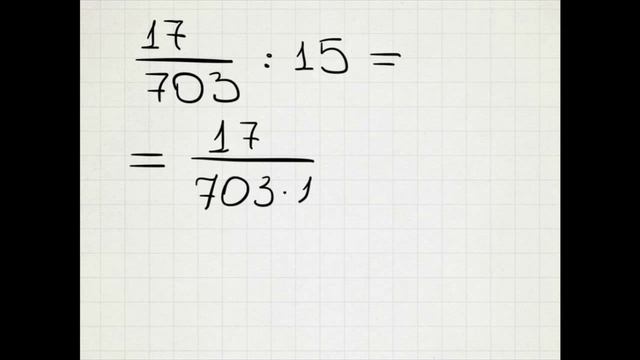 17/703 : 15 =
= 17/703·1